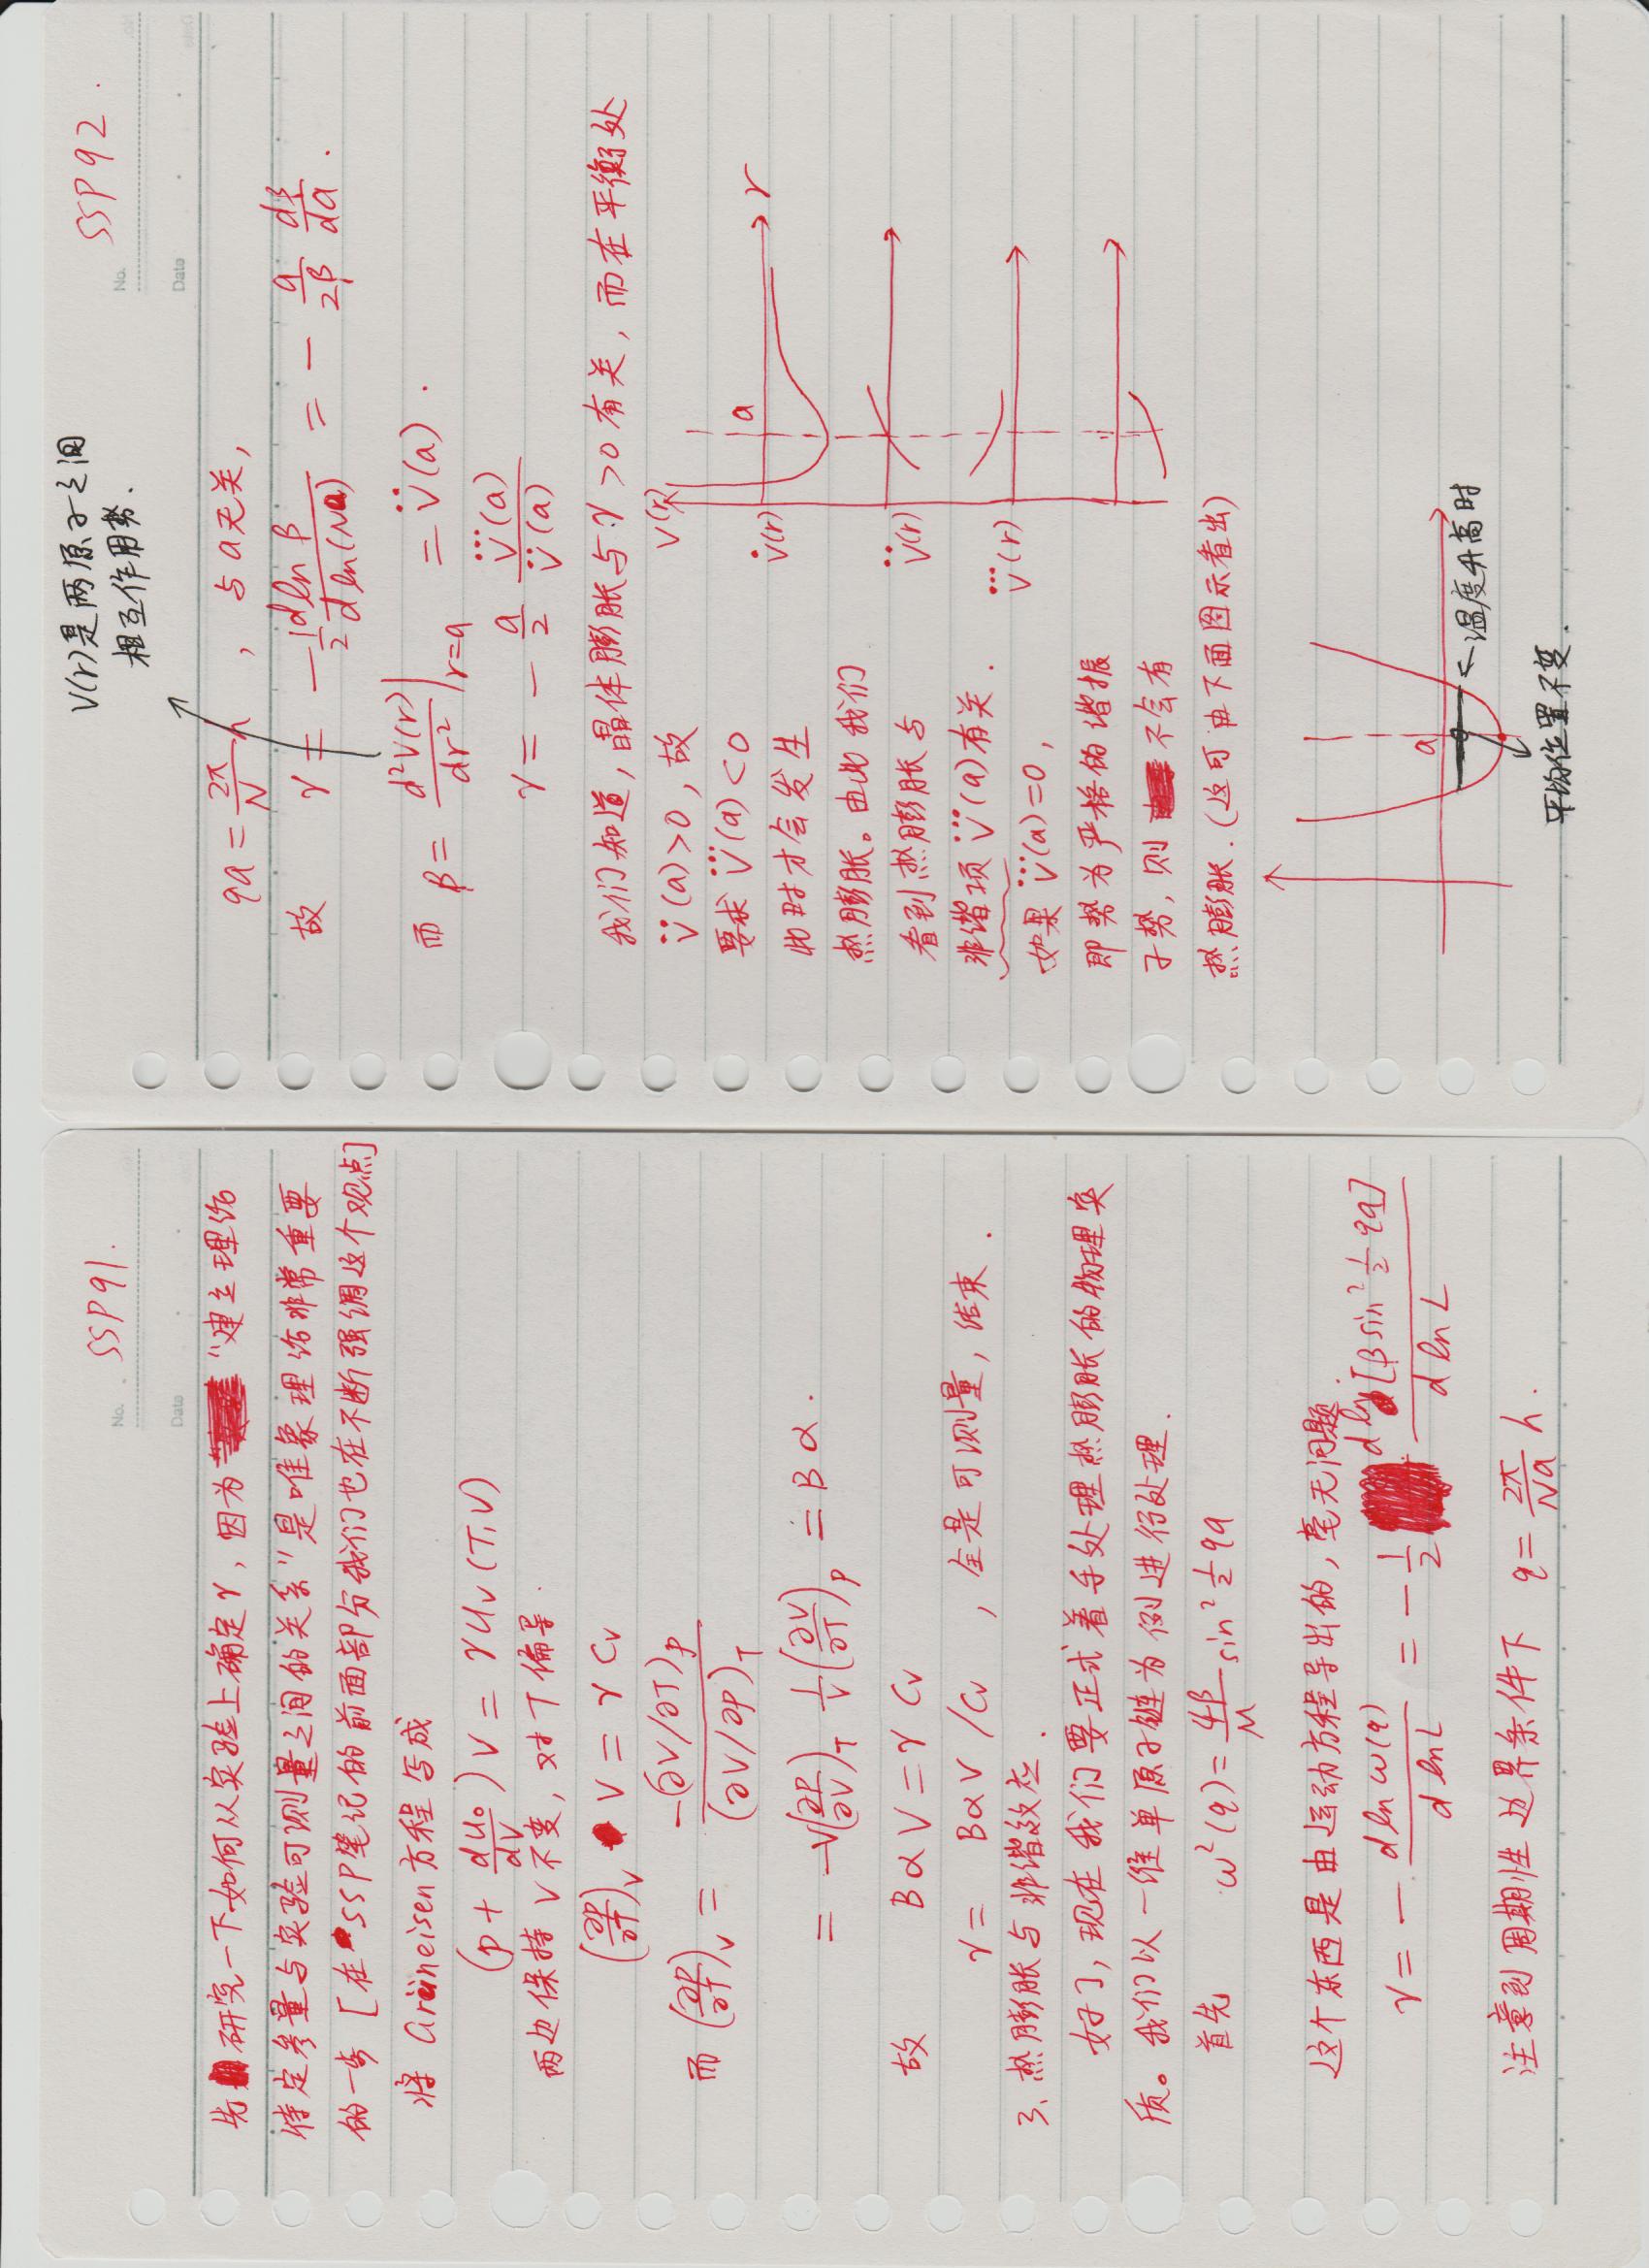 SSP91.
No.
Date
先研究一下如何从实验上确定γ，因为“建立理论
待定参量与实验可测量之间的关系”是唯象理论非常重要
的一步 [在SSP笔记的前面部分我们也在不断强调这个观点]
将 Grüneisen 方程写成
(p + dU₀/dV) V = γ U_V (T, V)
两边保持 V 不变，对 T 偏导.
(∂P/∂T)_V V = γ C_V
而 (∂P/∂T)_V = -(∂V/∂T)_P / (∂V/∂P)_T
= -V(∂P/∂V)_T 1/V (∂V/∂T)_P = B α .
故 B α V = γ C_V
γ = B α V / C_V ，全是可测量，结束 .
3、热膨胀与非谐效应 .
好了，现在我们要正式着手处理热膨胀的物理实
质。我们以一维单原子链为例进行处理.
首先 ω²(q) = 4β/M sin² ½ qa
这个东西是由运动方程导出的，毫无问题.
γ = - d ln ω(q) / d ln L = - 1/2 d ln [β sin² ½ qa] / d ln L
注意到周期性边界条件下 q = 2π/Na h .
V(r)是两原子之间
相互作用势.
SSP92.
No.
Date
qa = 2π/N h ，与a无关，
故 γ = - 1/2 d ln β / d ln(Na) = - a/2β dβ/da .
而 β = d²V(r)/dr² |_{r=a} = V̈(a) .
γ = - a/2 V⃛(a) / V̈(a)
我们知道，晶体膨胀与γ>0有关，而在平衡处
V̈(a)>0，故
要求 V⃛(a)<0
此时才会发生
热膨胀。由此我们
看到热膨胀与
非谐项 V⃛(a)有关 .
如果 V⃛(a)=0，
即势为严格的谐振
子势，则不会有
热膨胀.（这可由下面图示看出）
V(r)
a
r
V̇(r)
V̈(r)
V⃛(r)
a
←温度升高时
平均位置不变.